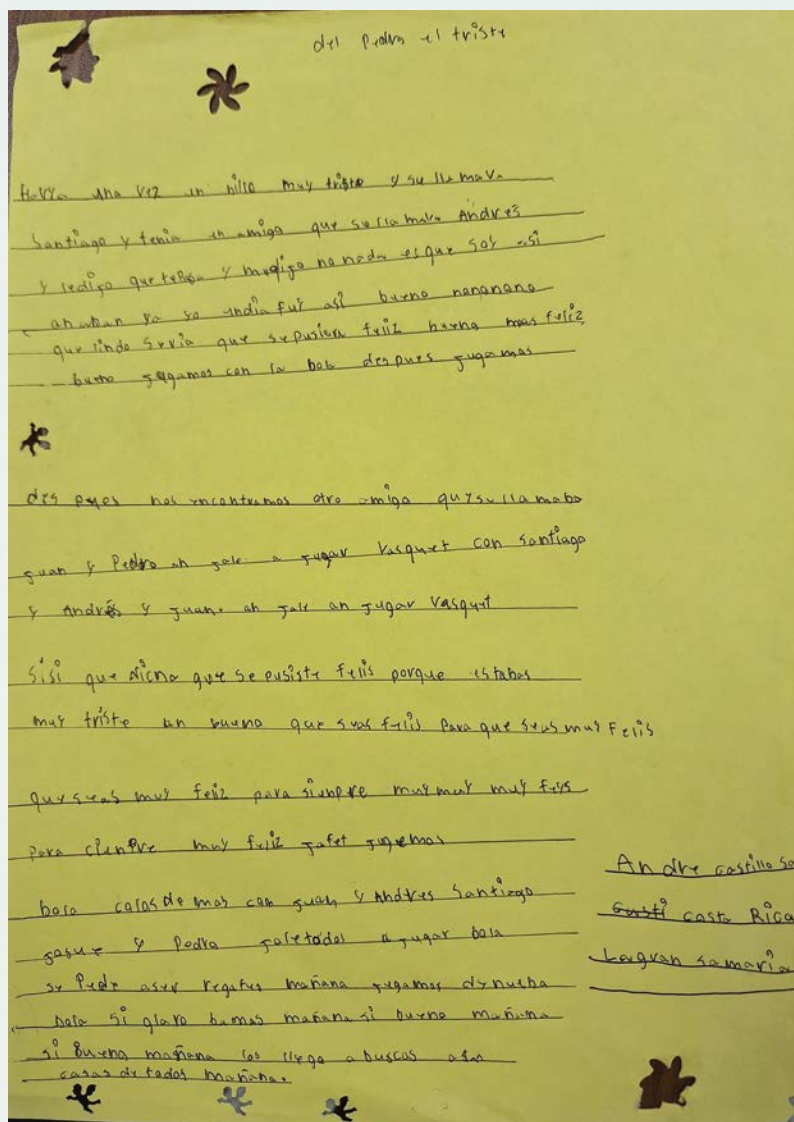 del Pedro el triste
Havya una vez un niño muy triste y se llamava
Santiago y tenia un amigo que se llamaba Andrés
y ledigo que y medigo no nada es que soy así
ya yo undia fuy así bueno nonono no
que lindo seria que se pusiera feliz bueno mas feliz
bueno jugamos con la bola despues jugamos
des pues nos encontramos otro amigo que se llamaba
juan y Pedro ah jale a jugar Vasquet con Santiago
y Andrés y juan. ah jale an jugar Vasquet
sisi que dicha que se pusiste felis porque estabas
muy triste an bueno que seas felis para que seas muy Felis
que seas muy feliz para sienpre muy muy muy
para cienpre muy feliz jugemos
bola con juan y Andres Santiago
josue y Pedro jale todos a jugar bola
se Pude mañana jugamos denuebo
bola si glaro bamos mañana si bueno mañana
si Bueno mañana los llego a buscas a sas
casas de todos mañana.
Andre castillo
costa Rica
Lagran samaria